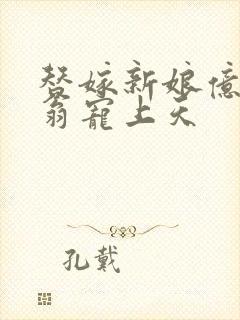 替嫁新娘億
翁寵上天
孔戴